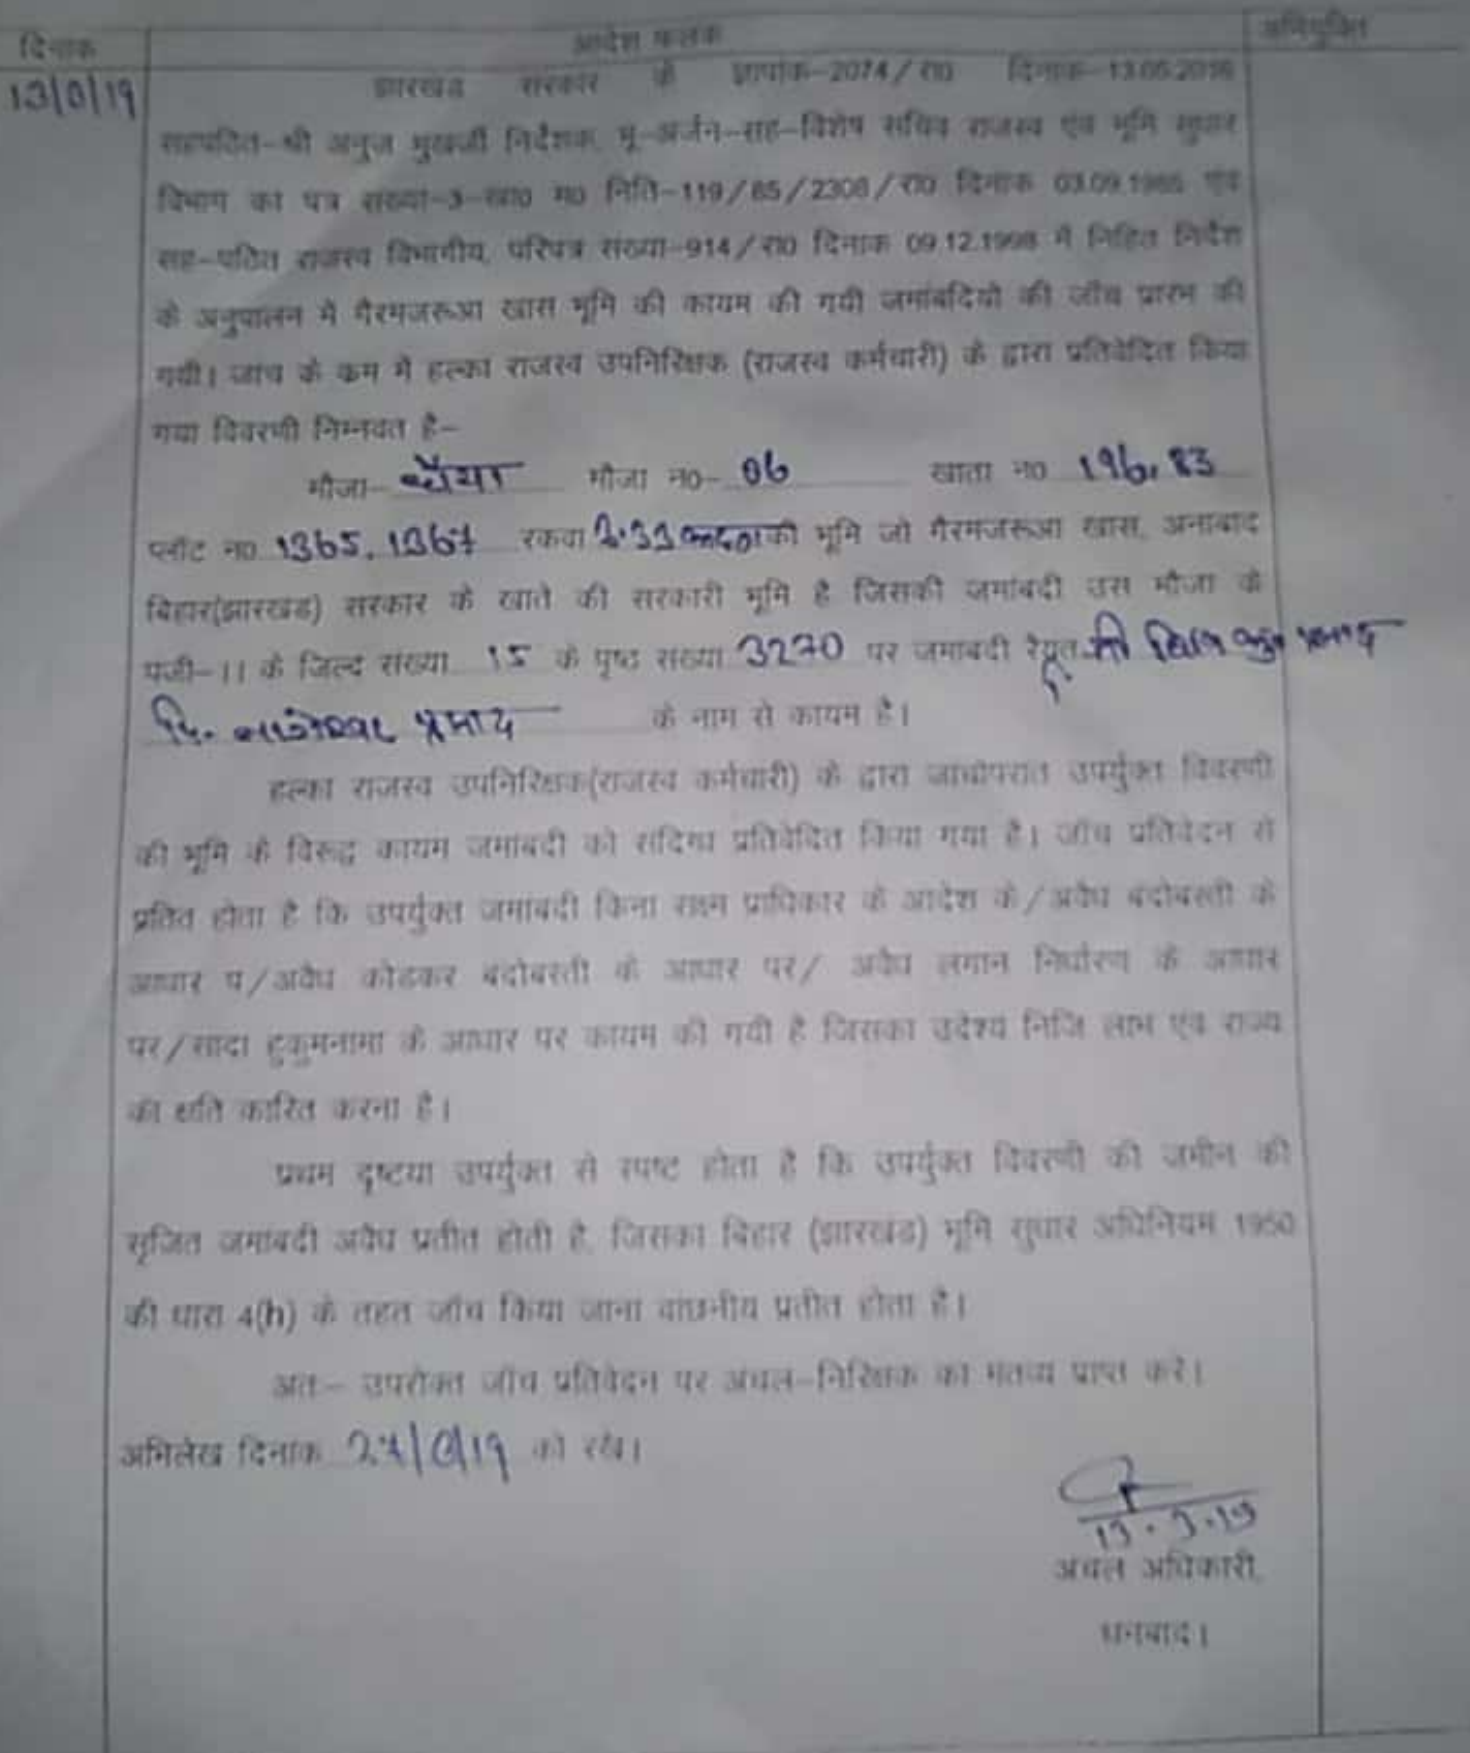 दिनांक आदेश फलक अभियुक्ति
13/ /19 झारखंड सरकार के ज्ञापांक-2074/रा0 दिनांक-13.05.2016
सहपठित-श्री अनुज मुखर्जी निदेशक, भू-अर्जन-सह-विशेष सचिव राजस्व एंव भूमि सुधार
विभाग का पत्र संख्या-3-खा0 म0 निति-119/85/2308/रा0 दिनांक 03.09.1985 एंव
सह-पठित राजस्व विभागीय, परिपत्र संख्या-914/रा0 दिनांक 09.12.1998 में निहित निर्देश
के अनुपालन में गैरमजरूआ खास भूमि की कायम की गयी जमांबंदियो की जाँच प्रारंभ की
गयी। जांच के क्रम में हल्का राजस्व उपनिरिक्षक (राजस्व कर्मचारी) के द्वारा प्रतिवेदित किया
गया विवरणी निम्नवत है-
मौजा- मौजा न0- 06 खाता न0 196, 83
प्लॉट न0 1365, 1367 रकवा की भूमि जो गैरमजरूआ खास, अनाबाद
बिहार(झारखंड) सरकार के खाते की सरकारी भूमि है जिसकी जमांबंदी उस मौजा के
पंजी-11 के जिल्द संख्या 15 के पृष्ठ संख्या 3270 पर जमाबंदी रैयत श्री प्रसाद
पि. प्रसाद के नाम से कायम है।
हल्का राजस्व उपनिरिक्षक(राजस्व कर्मचारी) के द्वारा जांचोपरांत उपर्युक्त विवरणी
की भूमि के विरूद्ध कायम जमांबंदी को संदिग्ध प्रतिवेदित किया गया है। जाँच प्रतिवेदन से
प्रतित होता है कि उपर्युक्त जमांबंदी बिना सक्षम प्राधिकार के आदेश के/अवैध बंदोबस्ती के
आधार प/अवैध कोडकर बंदोबस्ती के आधार पर/ अवैध लगान निर्धारण के आधार
पर/सादा हुकुमनामा के आधार पर कायम की गयी है जिसका उदेश्य निजि लाभ एंव राज्य
को क्षति कारित करना है।
प्रथम दृष्टया उपर्युक्त से स्पष्ट होता है कि उपर्युक्त विवरणी की जमीन की
सृजित जमांबंदी अवैध प्रतीत होती है, जिसका बिहार (झारखंड) भूमि सुधार अधिनियम 1950
की धारा 4(h) के तहत जाँच किया जाना वांछनीय प्रतीत होता है।
अतः- उपरोक्त जाँच प्रतिवेदन पर अंचल-निरिक्षक का मंतव्य प्राप्त करें।
अभिलेख दिनांक 27/ /19 को रखें।
अंचल अधिकारी,
धनबाद।